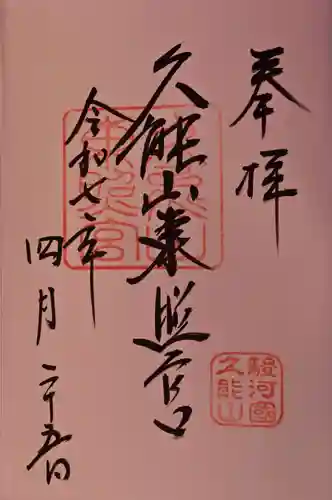 奉拝
久能山東照宮
令和七年
四月二十五日
駿河國
久能山